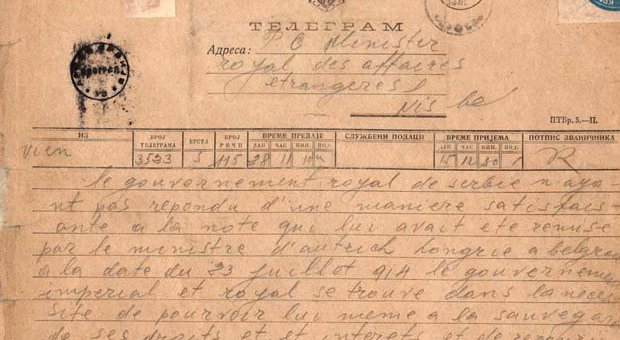 ТЕЛЕГРАМ
Адреса: Minister
royal des affaires
etrangeres
Nis
ПТБр. 5.—II.
ИЗ БРОЈ ТЕЛЕГРАМА ВРСТА БРОЈ РЕЧИ ВРЕМЕ ПРЕДАЈЕ СЛУЖБЕНИ ПОДАЦИ ВРЕМЕ ПРИЈЕМА ПОТПИС ЗВАНИЧНИКА
ДАН ЧАС МИН. ПОД. ДАН ЧАС МИН. ПОД.
vien 3523 115 28 11 10 15 12 30
le gouvernement royal de serbie n aya
nt pas repondu d'une maniere satisfais
ante a la note qui lui avait ete remise
par le ministre d'autrich hongrie a belgra
a la date du 23 juillot 914 le gouverneme
imperial et royal se trouve dans la neces
site de pourvoir lui meme a la sauvegar
de ses droits et et interets et de